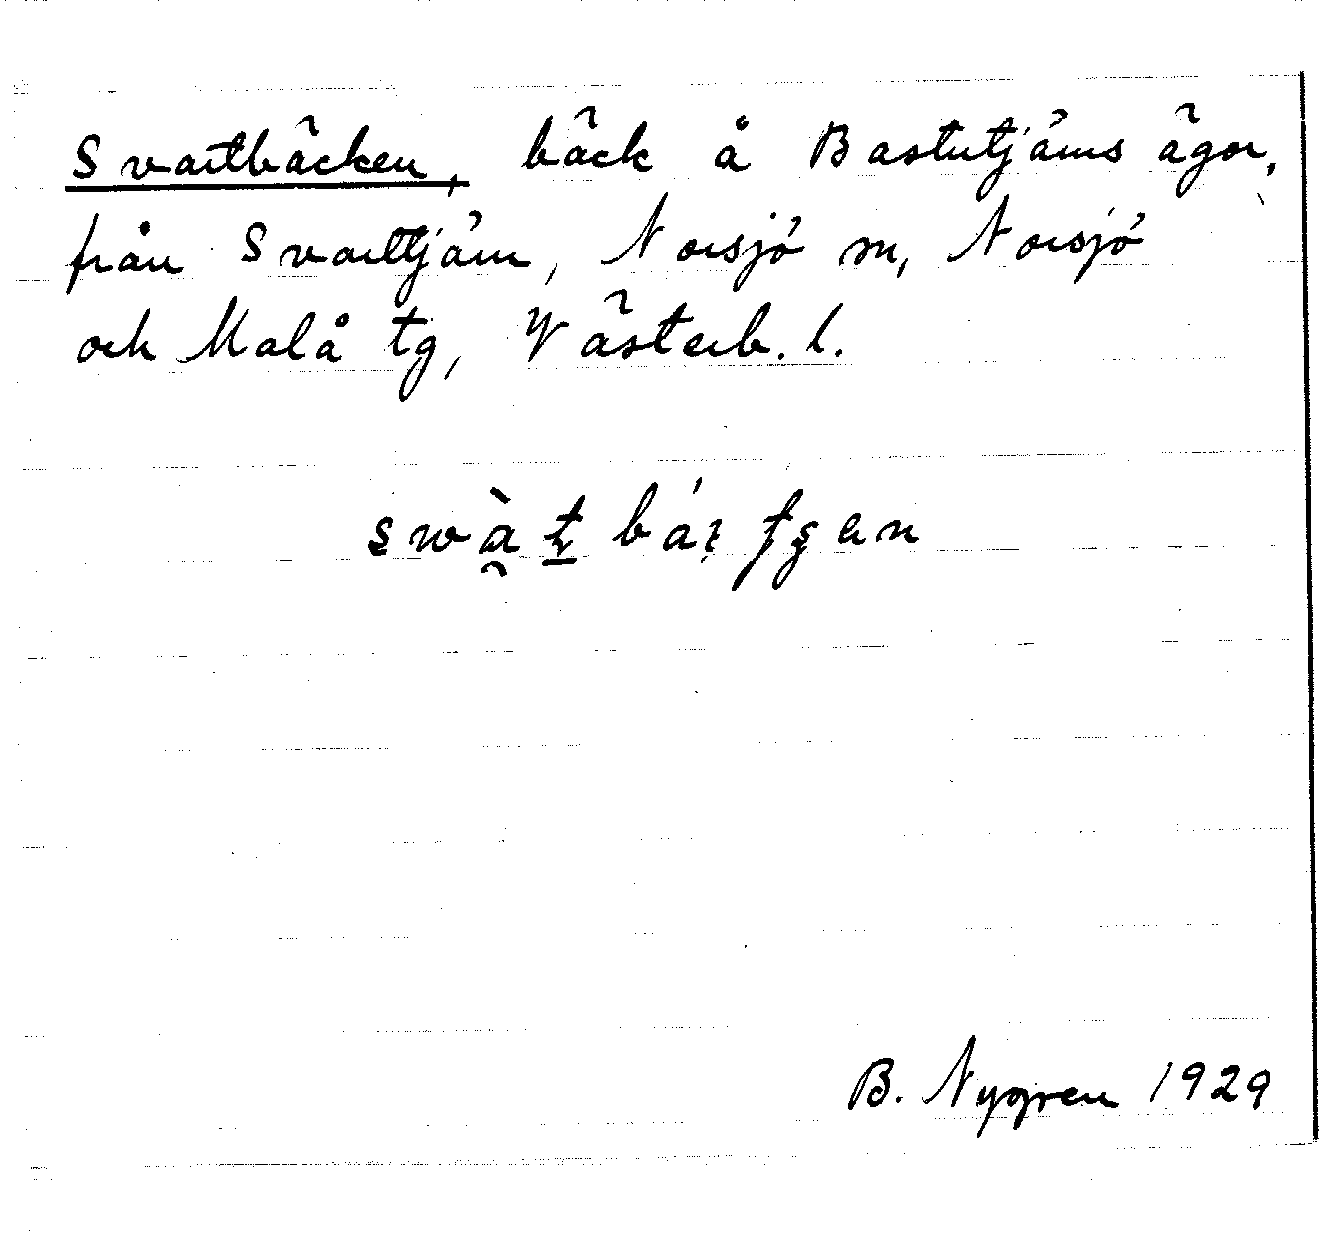 Svartbäcken, bäck å Bastutjärns ägor,
från Svarttjärn, Norsjö sn, Norsjö
och Malå tg, Västerb. l.
B. Nygren 1929